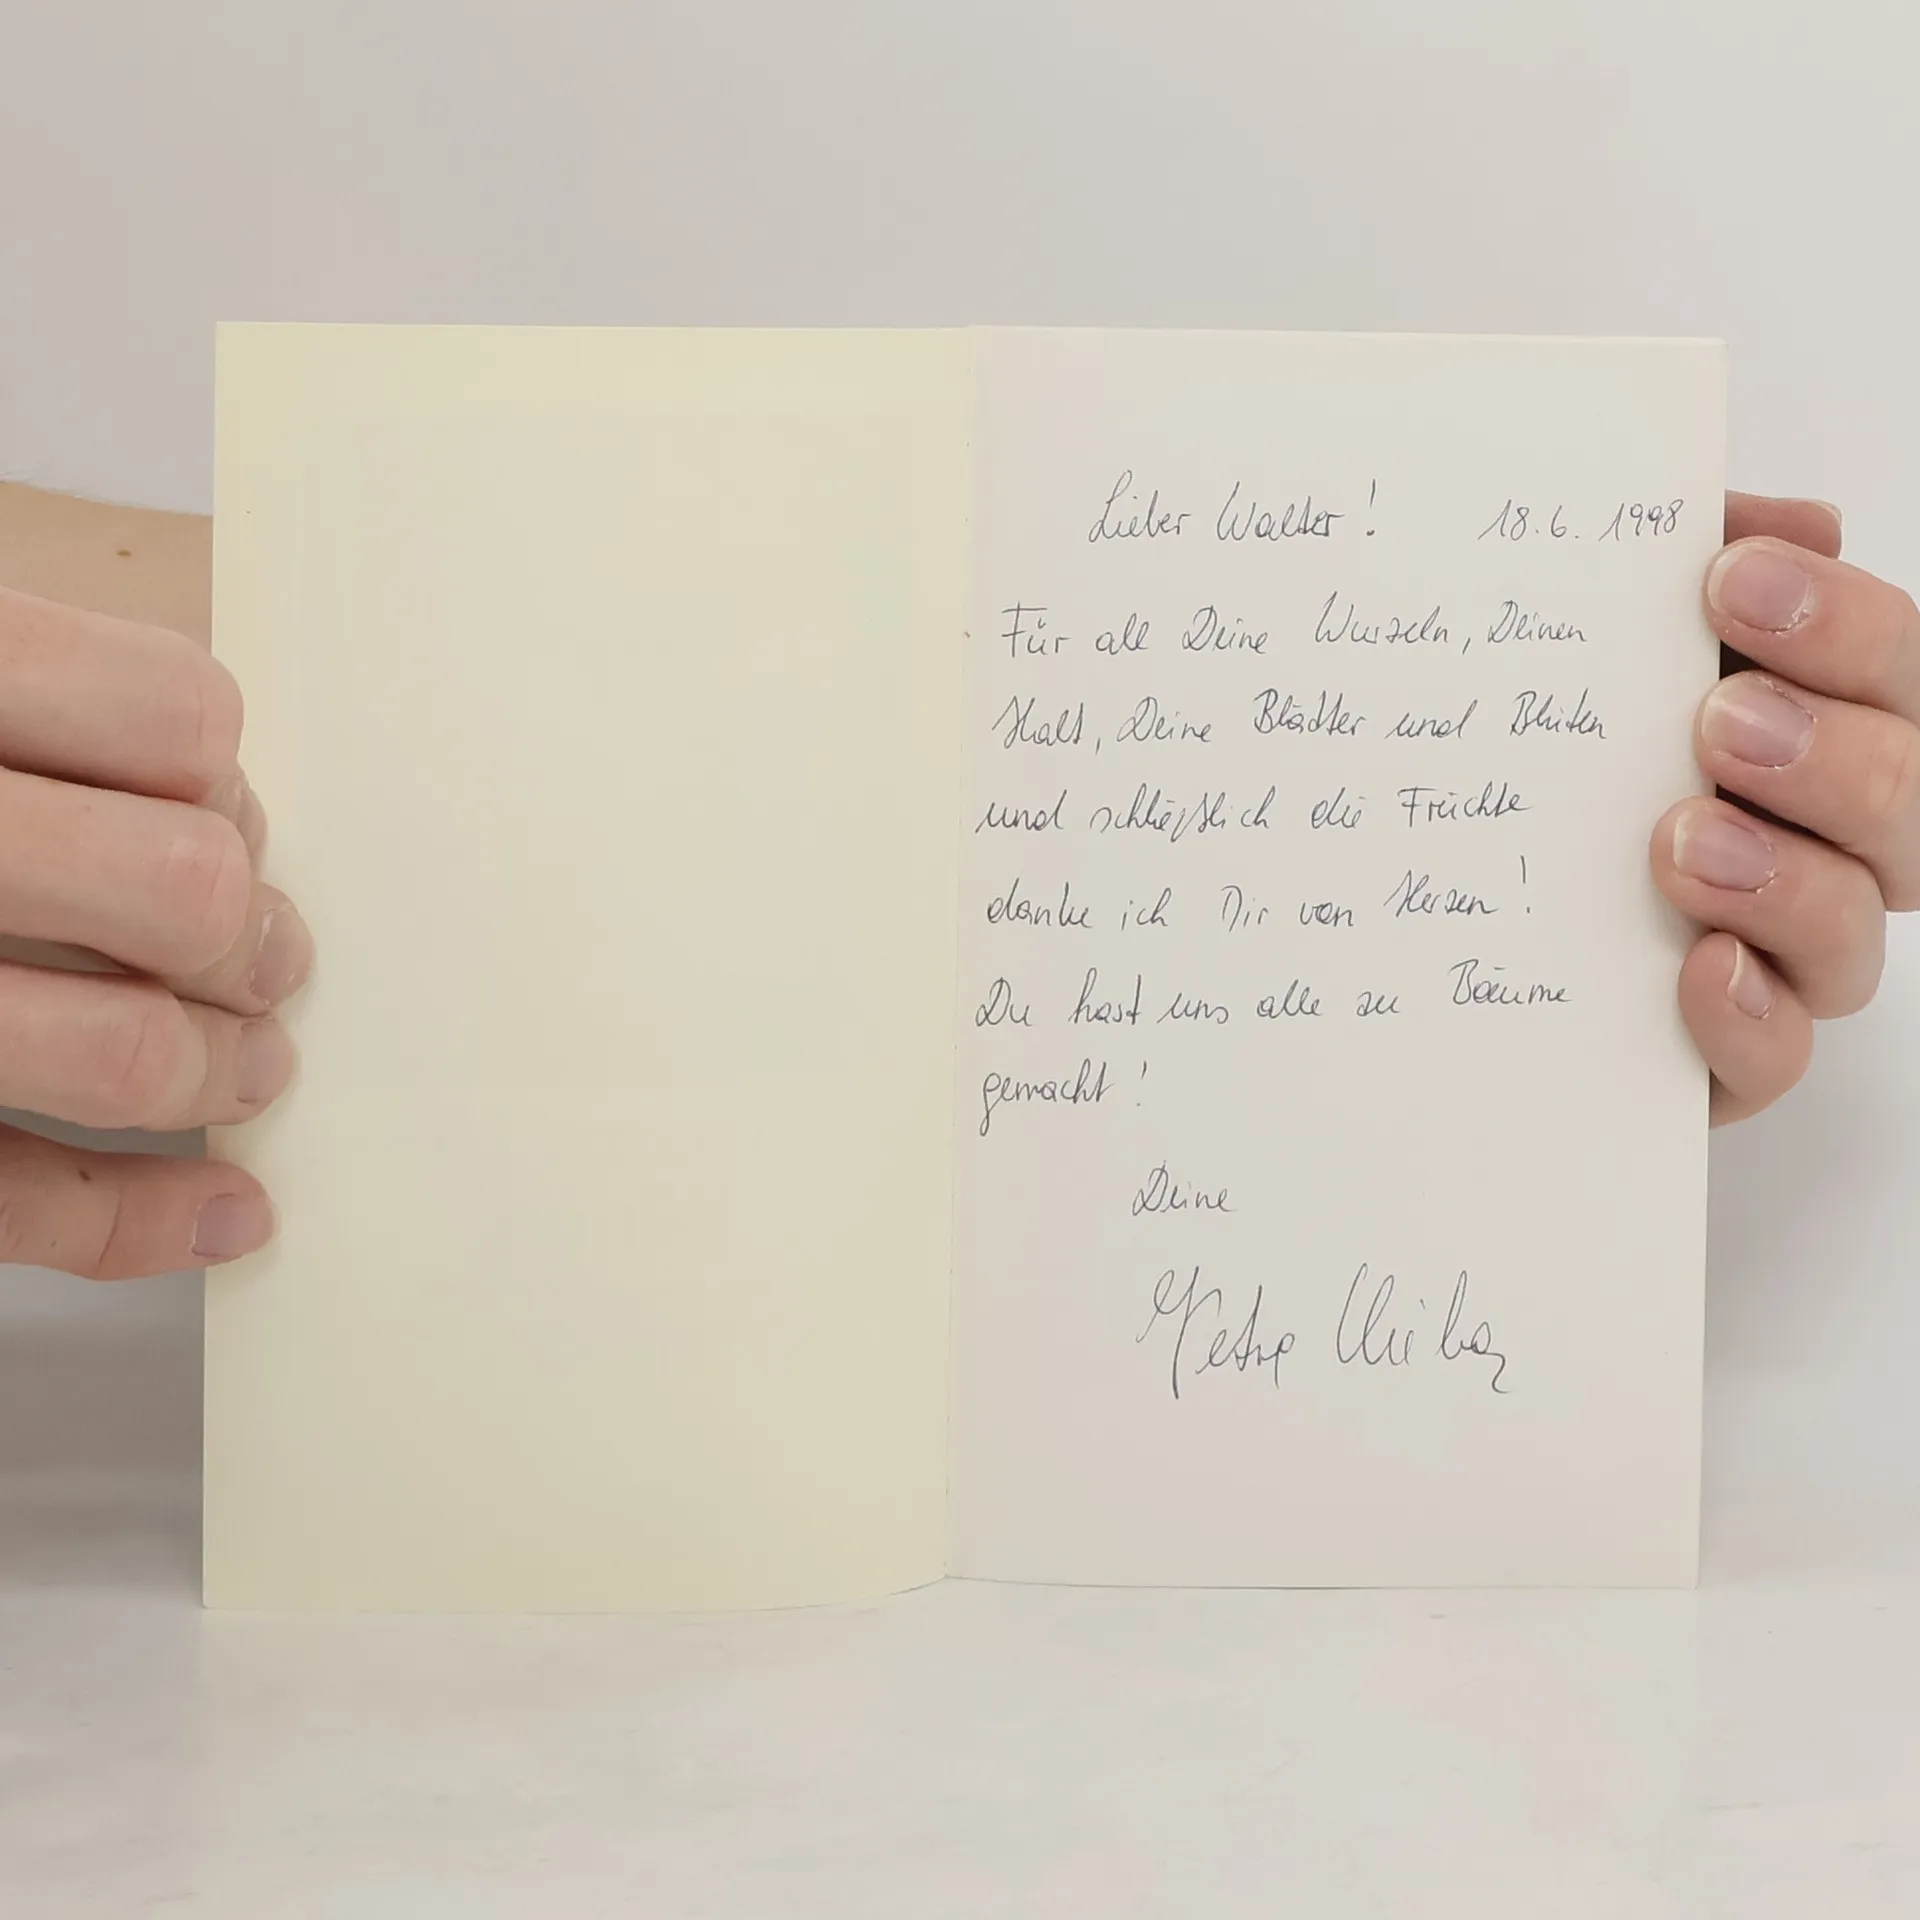 Lieber Walter! 18.6. 1998
Für all Deine Wurzeln, Deinen
Halt, Deine Blätter und Blüten
und schließlich die Früchte
danke ich Dir von Herzen!
Du hast uns alle zu Bäume
gemacht!
Deine
Petra